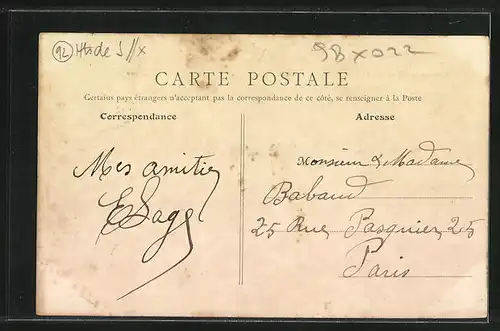 92 Hts de S //x
98x022
CARTE POSTALE
Certains pays étrangers n'acceptant pas la correspondance de ce côté, se renseigner à la Poste
Correspondance
Adresse
Mes amitiés
E Sage
Monsieur & Madame
Babaud
25 Rue Pasquier, 25
Paris